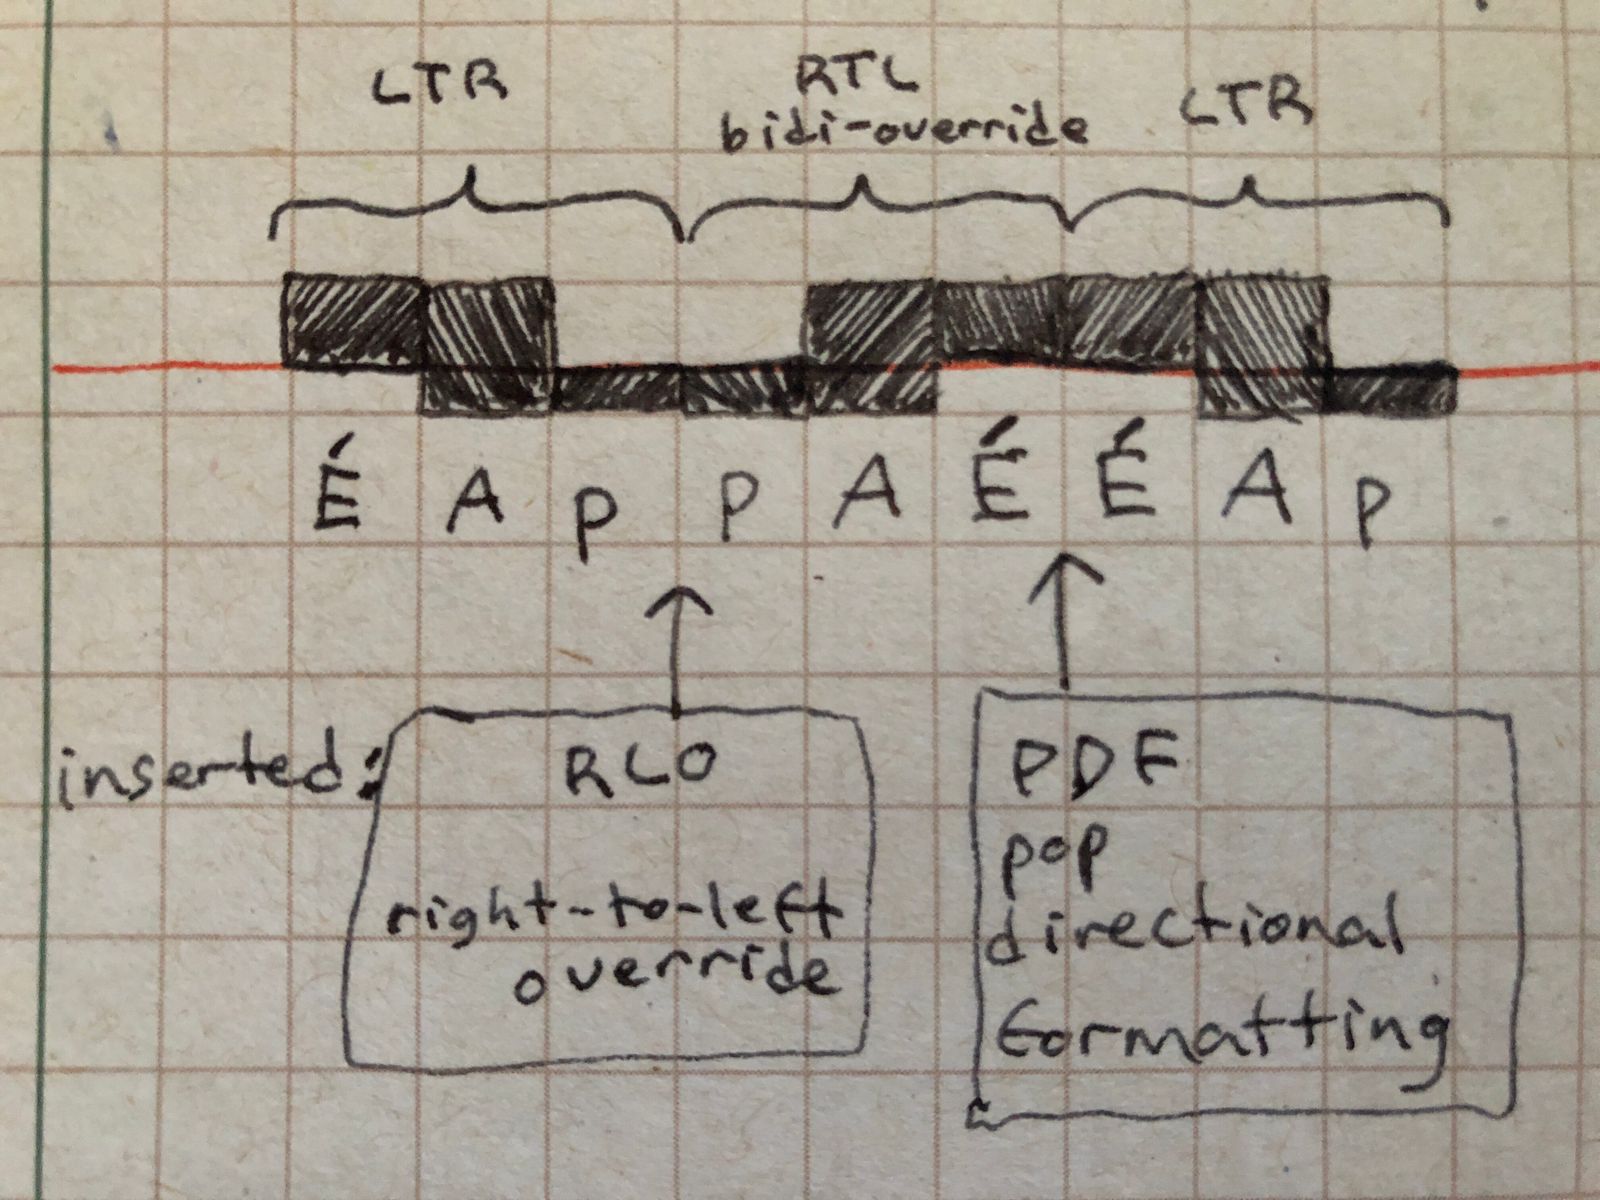 LTR
RTL
bidi-override
LTR
É A p p A É É A p
inserted:
RLO
right-to-left
override
PDF
pop
directional
formatting